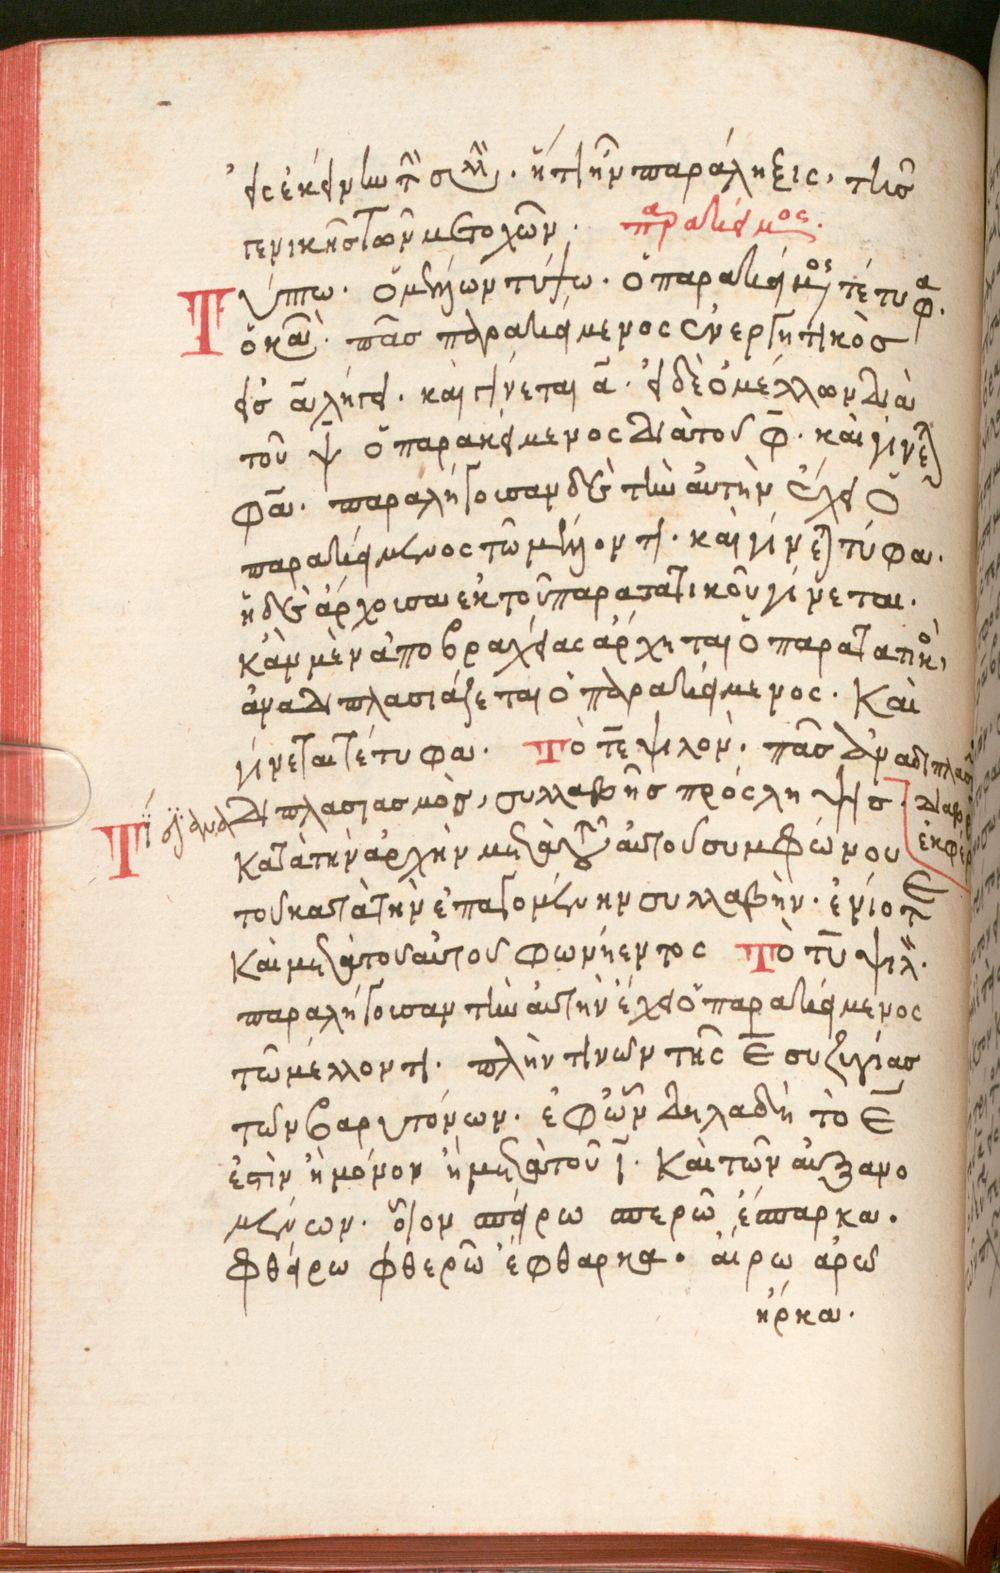 παράληξις. τῆς
γενικῆς τῶν μετοχῶν. παρακείμενος.
Τύπτω. ὁ μέλλων τύψω. ὁ παρακείμενος τέτυφα.
πᾶς παρακείμενος ἐνεργητικὸς
εἰς α λήγει. καὶ γίνεται α. εἰ δὲ ὁ μέλλων διὰ
τοῦ ψ ὁ παρακείμενος διὰ τοῦ φ. καὶ γίνεται
φα. παραλήγουσαν δὲ τὴν αὐτὴν ἔχει ὁ
παρακείμενος τῶ μέλλοντι. καὶ γίνεται τύφα.
ἡ δὲ ἄρχουσα ἐκ τοῦ παρατατικοῦ γίνεται.
κἂν μὲν ἀπο βραχείας ἄρχηται ὁ παρατατικὸς,
ἀναδιπλασιάζεται ὁ παρακείμενος. Καὶ
γίνεται τέτυφα. Τὸ τε ψιλόν. πᾶς ἀναδιπλασι
διπλασιασμὸς, συλλαβῆς πρόσληψις.
Κατὰ τὴν ἀρχὴν μετὰ τοῦ αὐτοῦ συμφώνου
τοῦ κατὰ τὴν ἐπαγομένην συλλαβὴν. ἐνίοτε
Καὶ μετὰ τοῦ αὐτοῦ φωνήεντος Τὸ τυ ψιλ.
παραλήγουσαν τὴν αὐτὴν ἔχει ὁ παρακείμενος
τῶ μέλλοντι. πλὴν τινων τῆς ε συζυγίας
τῶν βαρυτόνων. ἐφ' ὧν δηλαδὴ τὸ ε
ἐστὶν ἢ μόνον ἢ μετὰ τοῦ ι. Καὶ τῶν αὐξανο
μένων. οἷον σπείρω σπερῶ ἔσπαρκα.
φθείρω φθερῶ ἔφθαρκα. αἴρω ἀρῶ
ἦρκα.